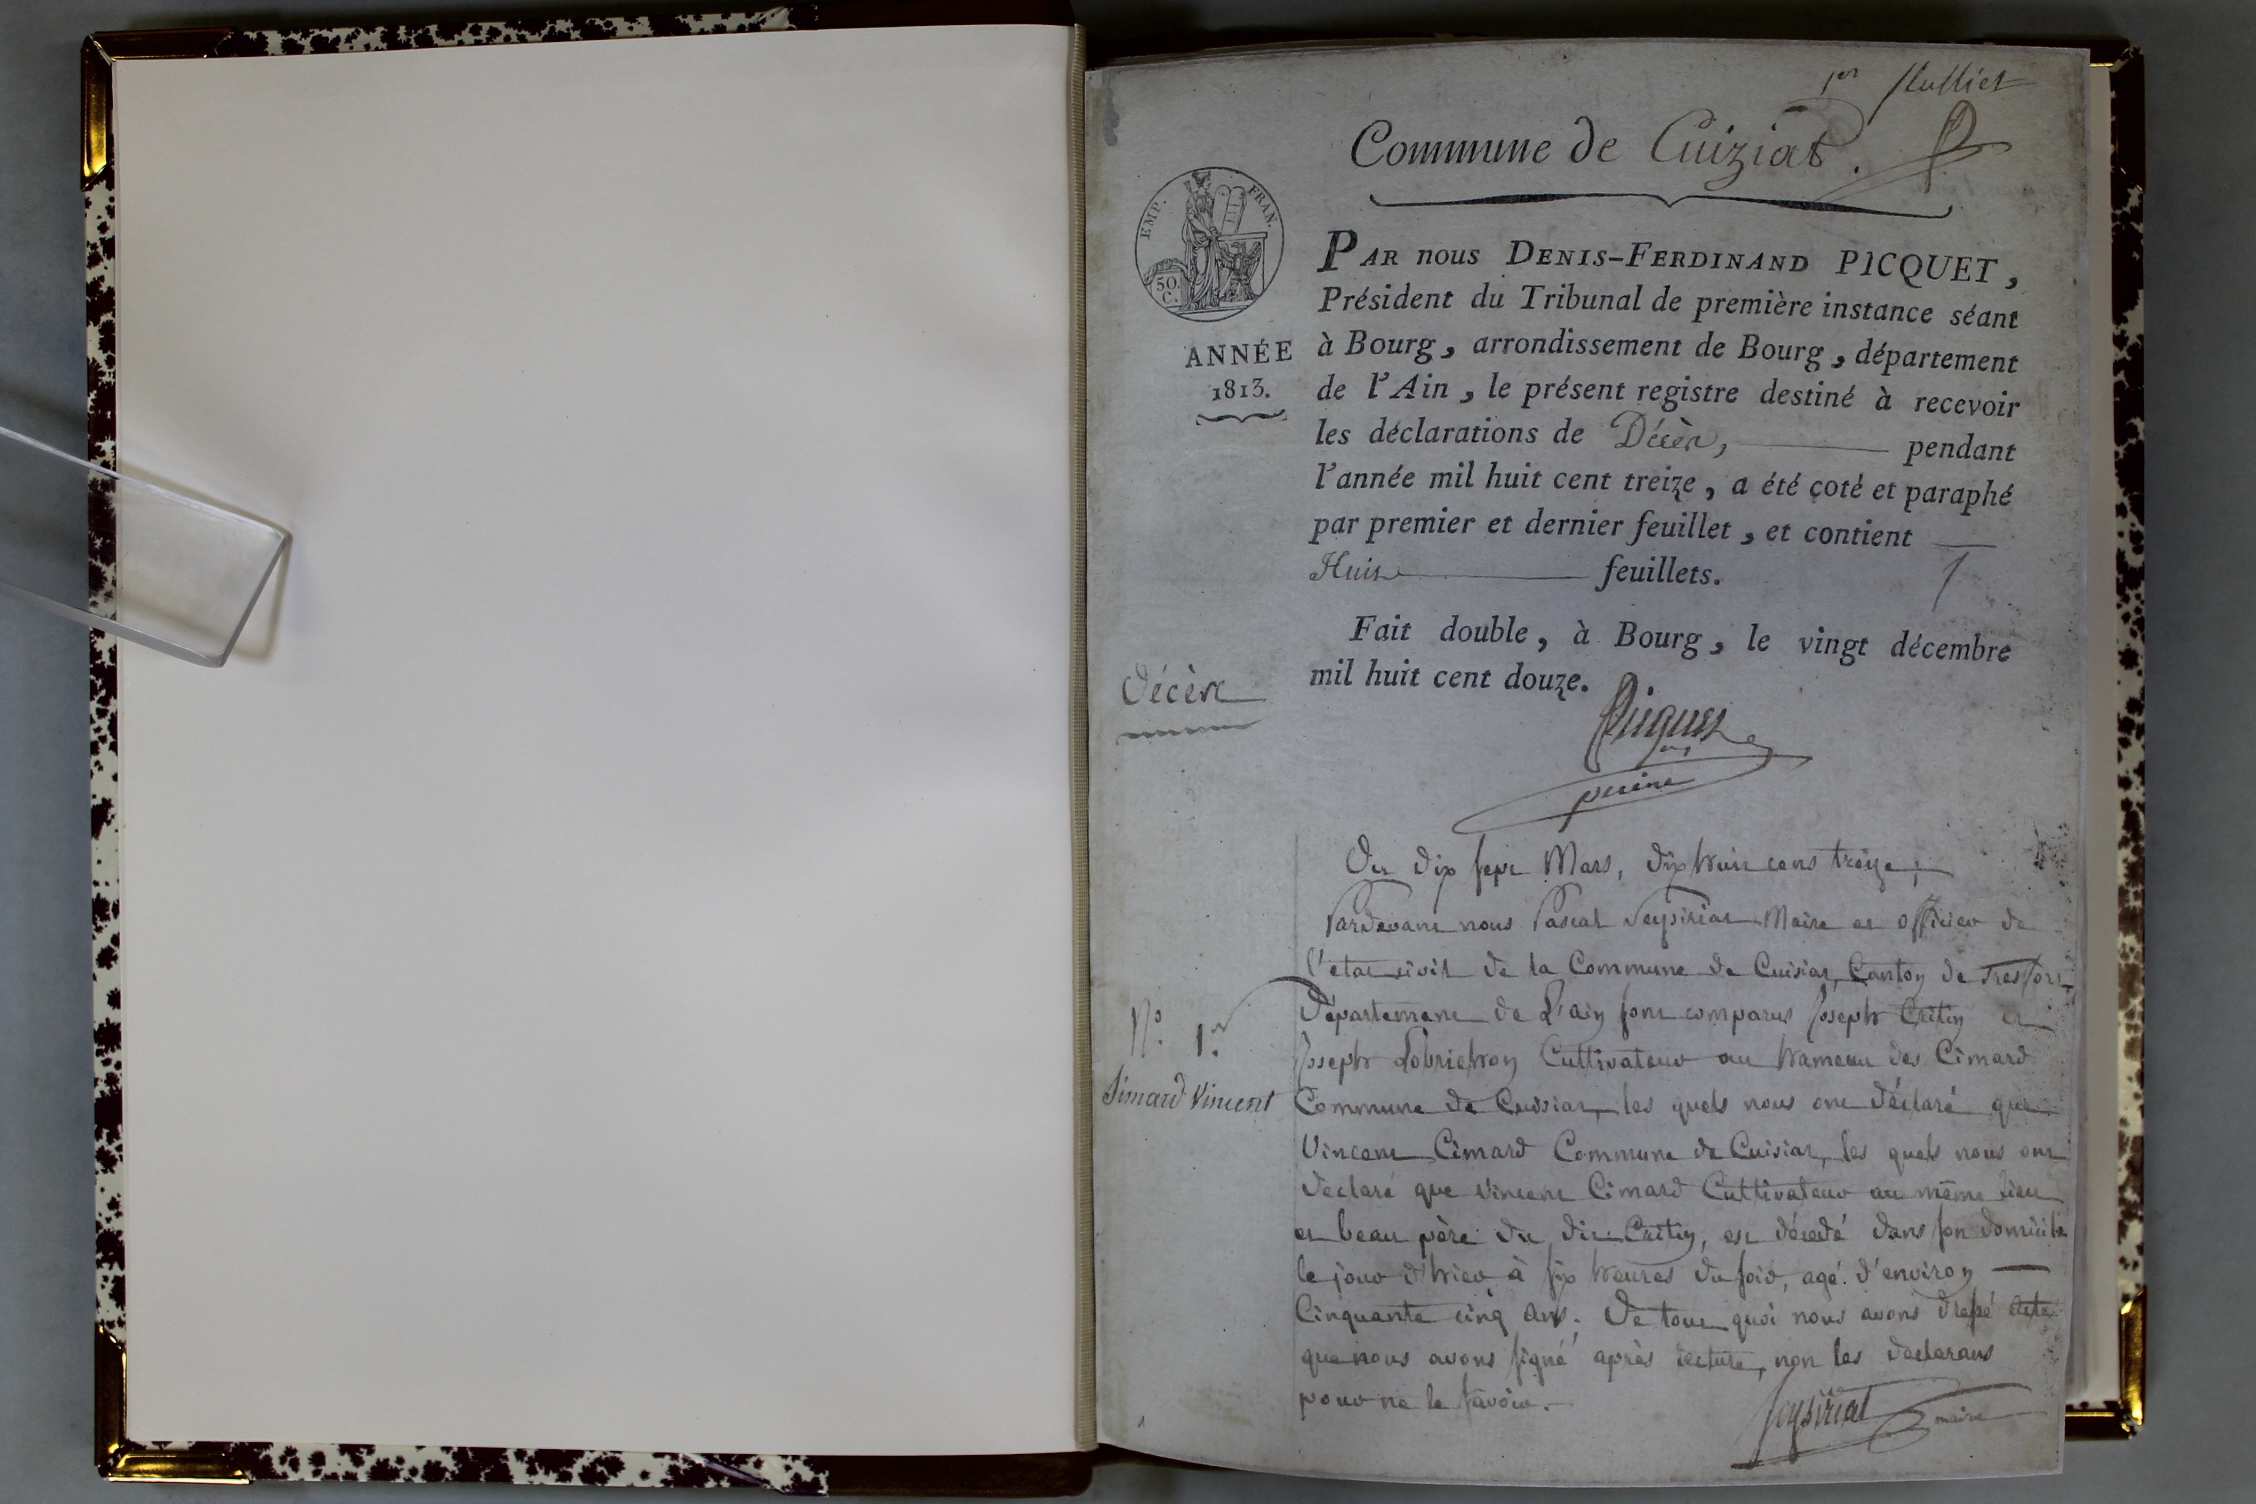 1er feuillet
Commune de Cuiziat.
EMP. FRAN.
50. C.
ANNÉE
1813.
PAR nous DENIS-FERDINAND PICQUET,
Président du Tribunal de première instance séant
à Bourg, arrondissement de Bourg, département
de l'Ain, le présent registre destiné à recevoir
les déclarations de Décès, pendant
l'année mil huit cent treize, a été coté et paraphé
par premier et dernier feuillet, et contient
Huit feuillets.
Fait double, à Bourg, le vingt décembre
mil huit cent douze.
Décès
Picquet
Du dix sept Mars, dix huit cent treize,
Pardevant nous Pascal Seysiriat Maire et officier de
l'etat civil de la Commune de Cuisiat, Canton de Tresfort
Département de L'ain sont comparus Joseph Critin et
N.º 1.er
Joseph Lobrichon Cultivateur au hameau des Cimard
Simard Vincent
Commune de Cuisiat, les quels nous ont déclaré que
Vincent Cimard Commune de Cuisiat, les quels nous ont
declaré que Vincent Cimard Cultivateur au même lieu
et beau père du dit Critin, est décedé dans son domicile
le jour d'hier à six heures du soir, agé d'environ
Cinquante cinq ans. De tout quoi nous avons dressé acte
que nous avons signé après lecture, non les declarans
pour ne le savoir.
Seysiriat maire